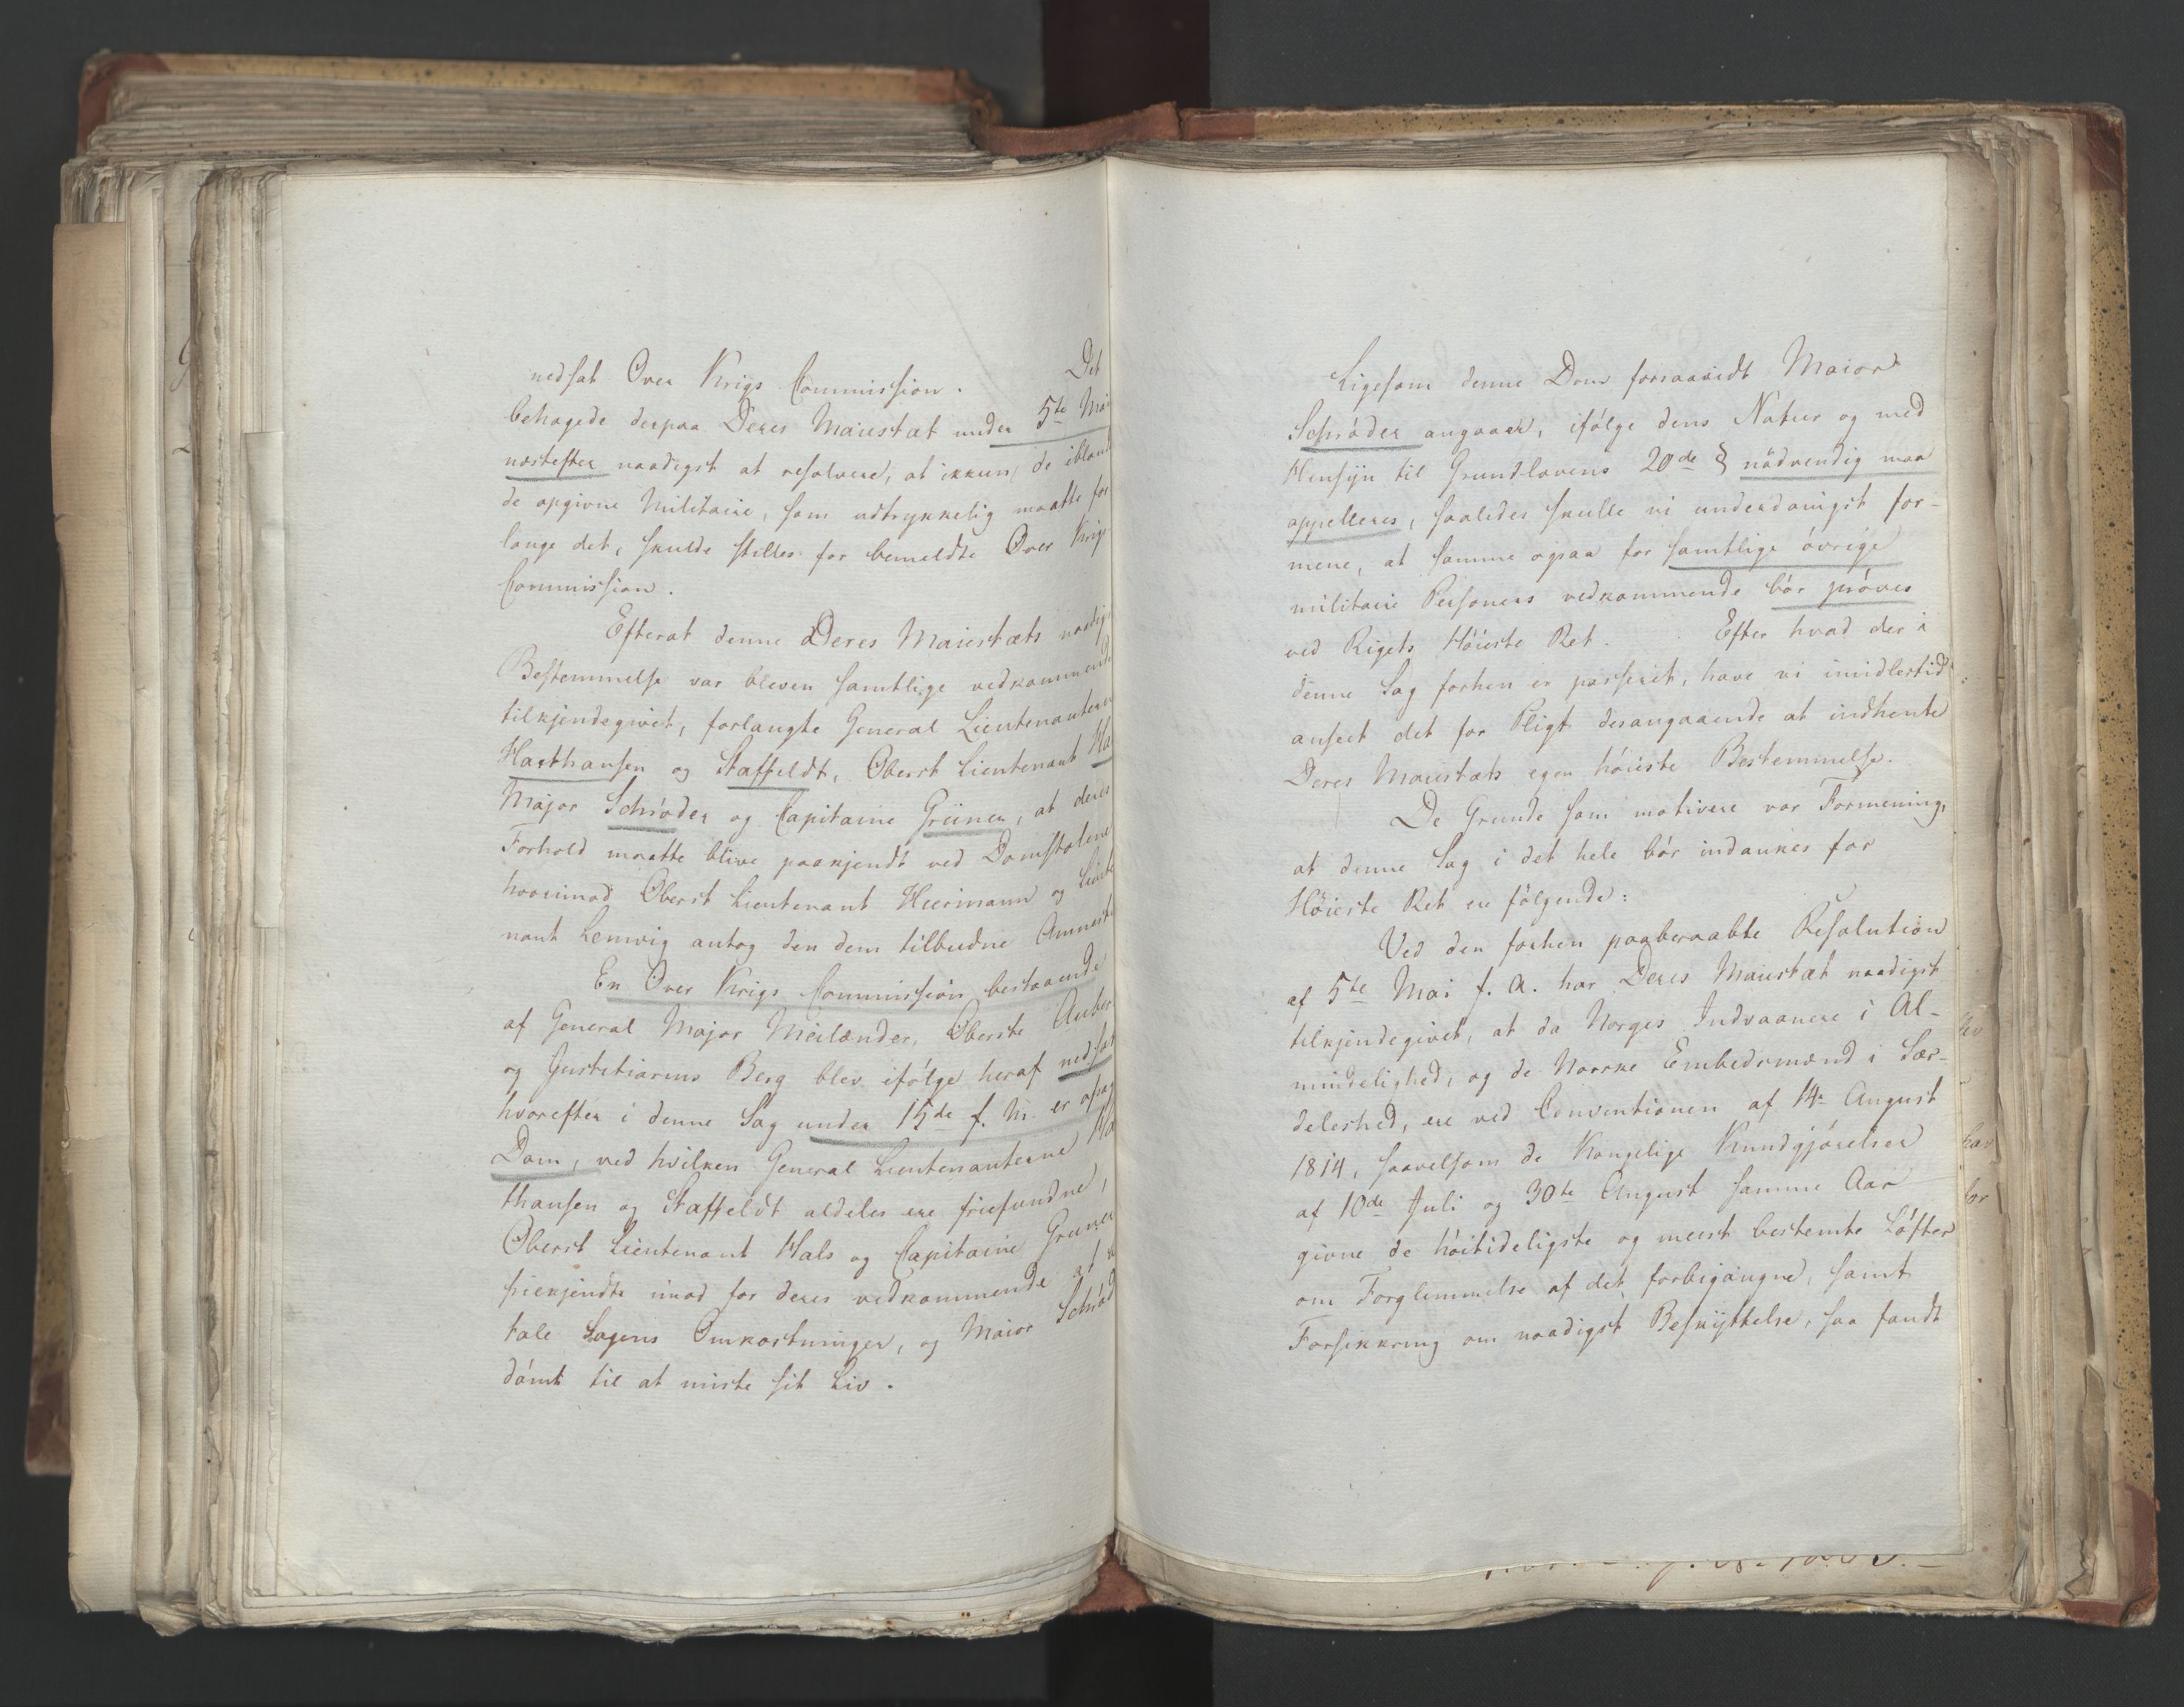 nedsat Over Krigs Commission. Det
behagede derpaa Deres Maiestæt under 5te Mai
næstefter naadigst at resolvere, at ikkun de iblandt
de opgivne Militaire, som udtrykkelig maatte for
lange det, skulde stilles for bemeldte Over Krigs
Commission.
Efterat denne Deres Maiestæts naadige
Bestemmelse var bleven samtlige vedkommende
tilkjendegivet, forlangte General Lieutenanterne
Haxthausen og Staffeldt, Oberst Lieutenant Ha
Major Schrøder og Capitaine Grüner, at deres
Forhold maatte blive paakjendt ved Domstolene
hvorimod Oberst Lieutenant Hiermann og Lieute
nant Lemvig antog den dem tilbudne Amnestie
En Over Krigs Commission bestaaende
af General Major Meilænder, Oberste Anker
og Justitiarius Berg blev ifólge heraf nedsat
hvorefter i denne Sag under 15de f. M. er afsagt
Dom, ved hvilken General Lieutenanterne Ha
thausen og Staffeldt aldeles ere friefundne,
Oberst Lieutenant Hals og Capitaine Gruner
friekjendte imod for deres vedkommende at
tale Sagens Omkostninger, og Maior Schrød
dómt til at miste sit Liv.
Ligesom denne Dom forsaavidt Maior
Schróder angaaer, ifólge dens Natur og med
Hensyn til Grundlovens 20de § nódvendig maa
appelleres, saaledes skulle vi underdanigst for-
mene, at samme ogsaa for samtlige óvrige
militaire Personers vedkommende bór próves
ved Rigets Hóieste Ret. Efter hvad der i
denne Sag forhen er passeret, have vi imidlertid
anseet det for Pligt desangaaende at indhente
Deres Maiestæts egen hóieste Bestemmelse.
De Grunde som motivere vor Formening,
at denne Sag i det hele bór indankes for
Hóieste Ret ere fólgende:
Ved den forhen paaberaabte Resolution
af 5te Mai f. A. har Deres Maiestæt naadigst
tilkjendegivet, at da Norges Indvaanere i Al-
mindelighed, og de Norske Embedsmænd i Sær-
deleshed, ere ved Conventionen af 14 August
1814, saavelsom de Kongelige Kundgjórelser
af 10de Juli og 30te August samme Aar
givne de hóitideligste og meest bestemte Lófter
om Forglemmelse af det forbigangne, samt
Forsikkring om naadigst Beskyttelse, saa fandt